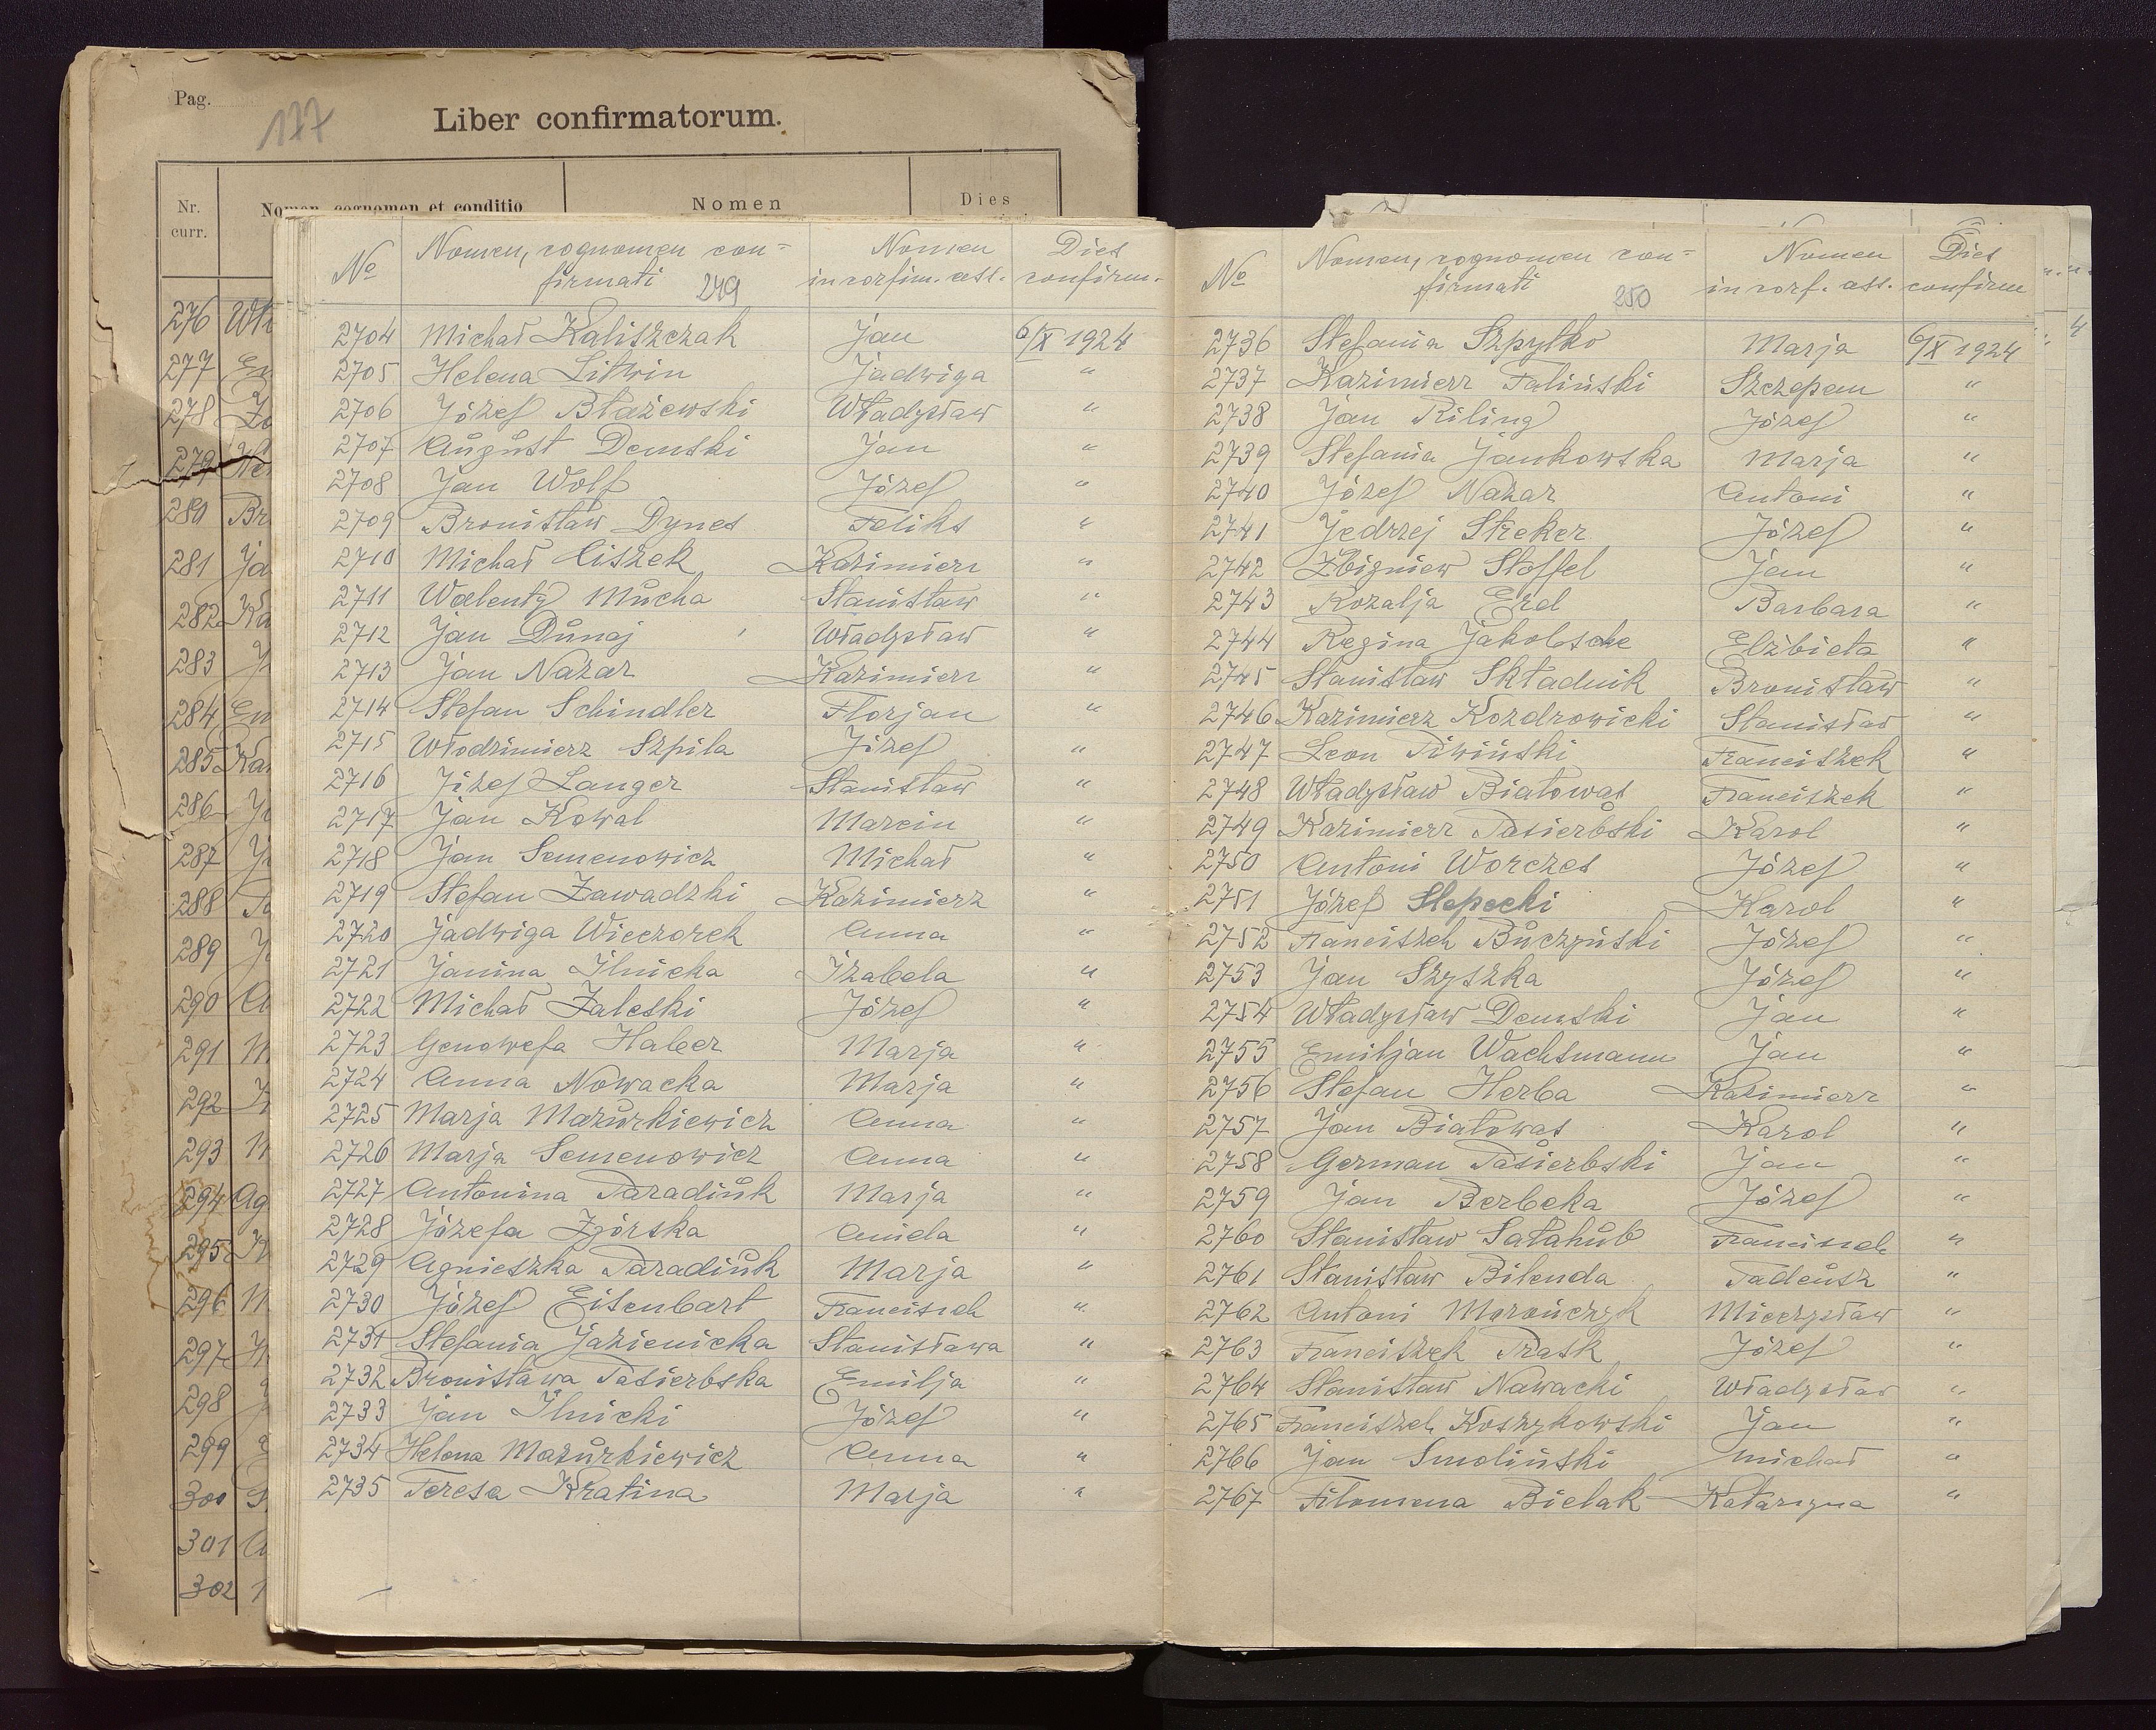 Pag.
177
Liber confirmatorum.
Nr. curr.
Nomen, cognomen et conditio
Nomen
Dies
276
277
278
279
280
281
282
283
284
285
286
287
288
289
290
291
292
293
294
295
296
297
298
299
300
301
302
№ Nomen, cognomen con= Nomen Dies
firmati 249 in confirm. ass. confirm.
2704 Michał Kaliszczak Jan 6/X 1924
2705 Helena Litwin Jadwiga "
2706 Józef Błażewski Władysław "
2707 August Demski Jan "
2708 Jan Wolf Józef "
2709 Bronisław Dynes Feliks "
2710 Michał Ciszek Kazimierz "
2711 Walenty Mucha Stanisław "
2712 Jan Dunaj Władysław "
2713 Jan Nazar Kazimierz "
2714 Stefan Schindler Florjan "
2715 Włodzimierz Szpila Józef "
2716 Józef Langer Stanisław "
2717 Jan Kowal Marcin "
2718 Jan Semenowicz Michał "
2719 Stefan Zawadzki Kazimierz "
2720 Jadwiga Wieczorek Anna "
2721 Janina Ilnicka Izabela "
2722 Michał Zaleski Józef "
2723 Genowefa Haber Marja "
2724 Anna Nowacka Marja "
2725 Marja Mazurkiewicz Anna "
2726 Marja Semenowicz Anna "
2727 Antonina Paradiuk Marja "
2728 Józefa Zgórska Aniela "
2729 Agnieszka Paradiuk Marja "
2730 Józef Eisenbart Francisch "
2731 Stefania Jazienicka Stanisława "
2732 Bronisława Pasierbska Emilja "
2733 Jan Ilnicki Józef "
2734 Helena Mazurkiewicz Anna "
2735 Teresa Kratina Marja "
№ Nomen, cognomen con= Nomen Dies
firmati 250 in conf. ass. confirm
2736 Stefania Szpytko Marja 6/X 1924
2737 Kazimierz Faliński Szczepan "
2738 Jan Riling Józef "
2739 Stefania Jankowska Marja "
2740 Józef Nazar Antoni "
2741 Jędrzej Streker Józef "
2742 Zbigniew Stoffel Jan "
2743 Rozalja Erd Barbara "
2744 Regina Jakobsche Elżbieta "
2745 Stanisław Składnik Bronisław "
2746 Kazimierz Kozdrowicki Stanisław "
2747 Leon Piwiński Franciszek "
2748 Władysław Białowas Franciszek "
2749 Kazimierz Pasierbski Karol "
2750 Antoni Worczes Józef "
2751 Józef Slepecki Karol "
2752 Franciszek Buczyński Józef "
2753 Jan Szyszka Józef "
2754 Władysław Demski Jan "
2755 Emiljan Wachsmann Jan "
2756 Stefan Herba Kazimierz "
2757 Jan Białowas Karol "
2758 German Pasierbski Jan "
2759 Jan Berbeka Józef "
2760 Stanisław Sałahub Francisch "
2761 Stanisław Bilenda Tadeusz "
2762 Antoni Marończyk Mieczysław "
2763 Franciszek Prask Józef "
2764 Stanisław Nawacki Władysław "
2765 Franciszek Koszykowski Jan "
2766 Jan Smoliński Michał "
2767 Filomena Bielak Katarzyna "